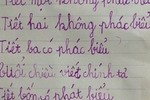 Tiết một không phát biểu
Tiết hai không phát biểu
Tiết ba có phát biểu
Buổi chiều viết chính tả
Tiết bốn có phát biểu